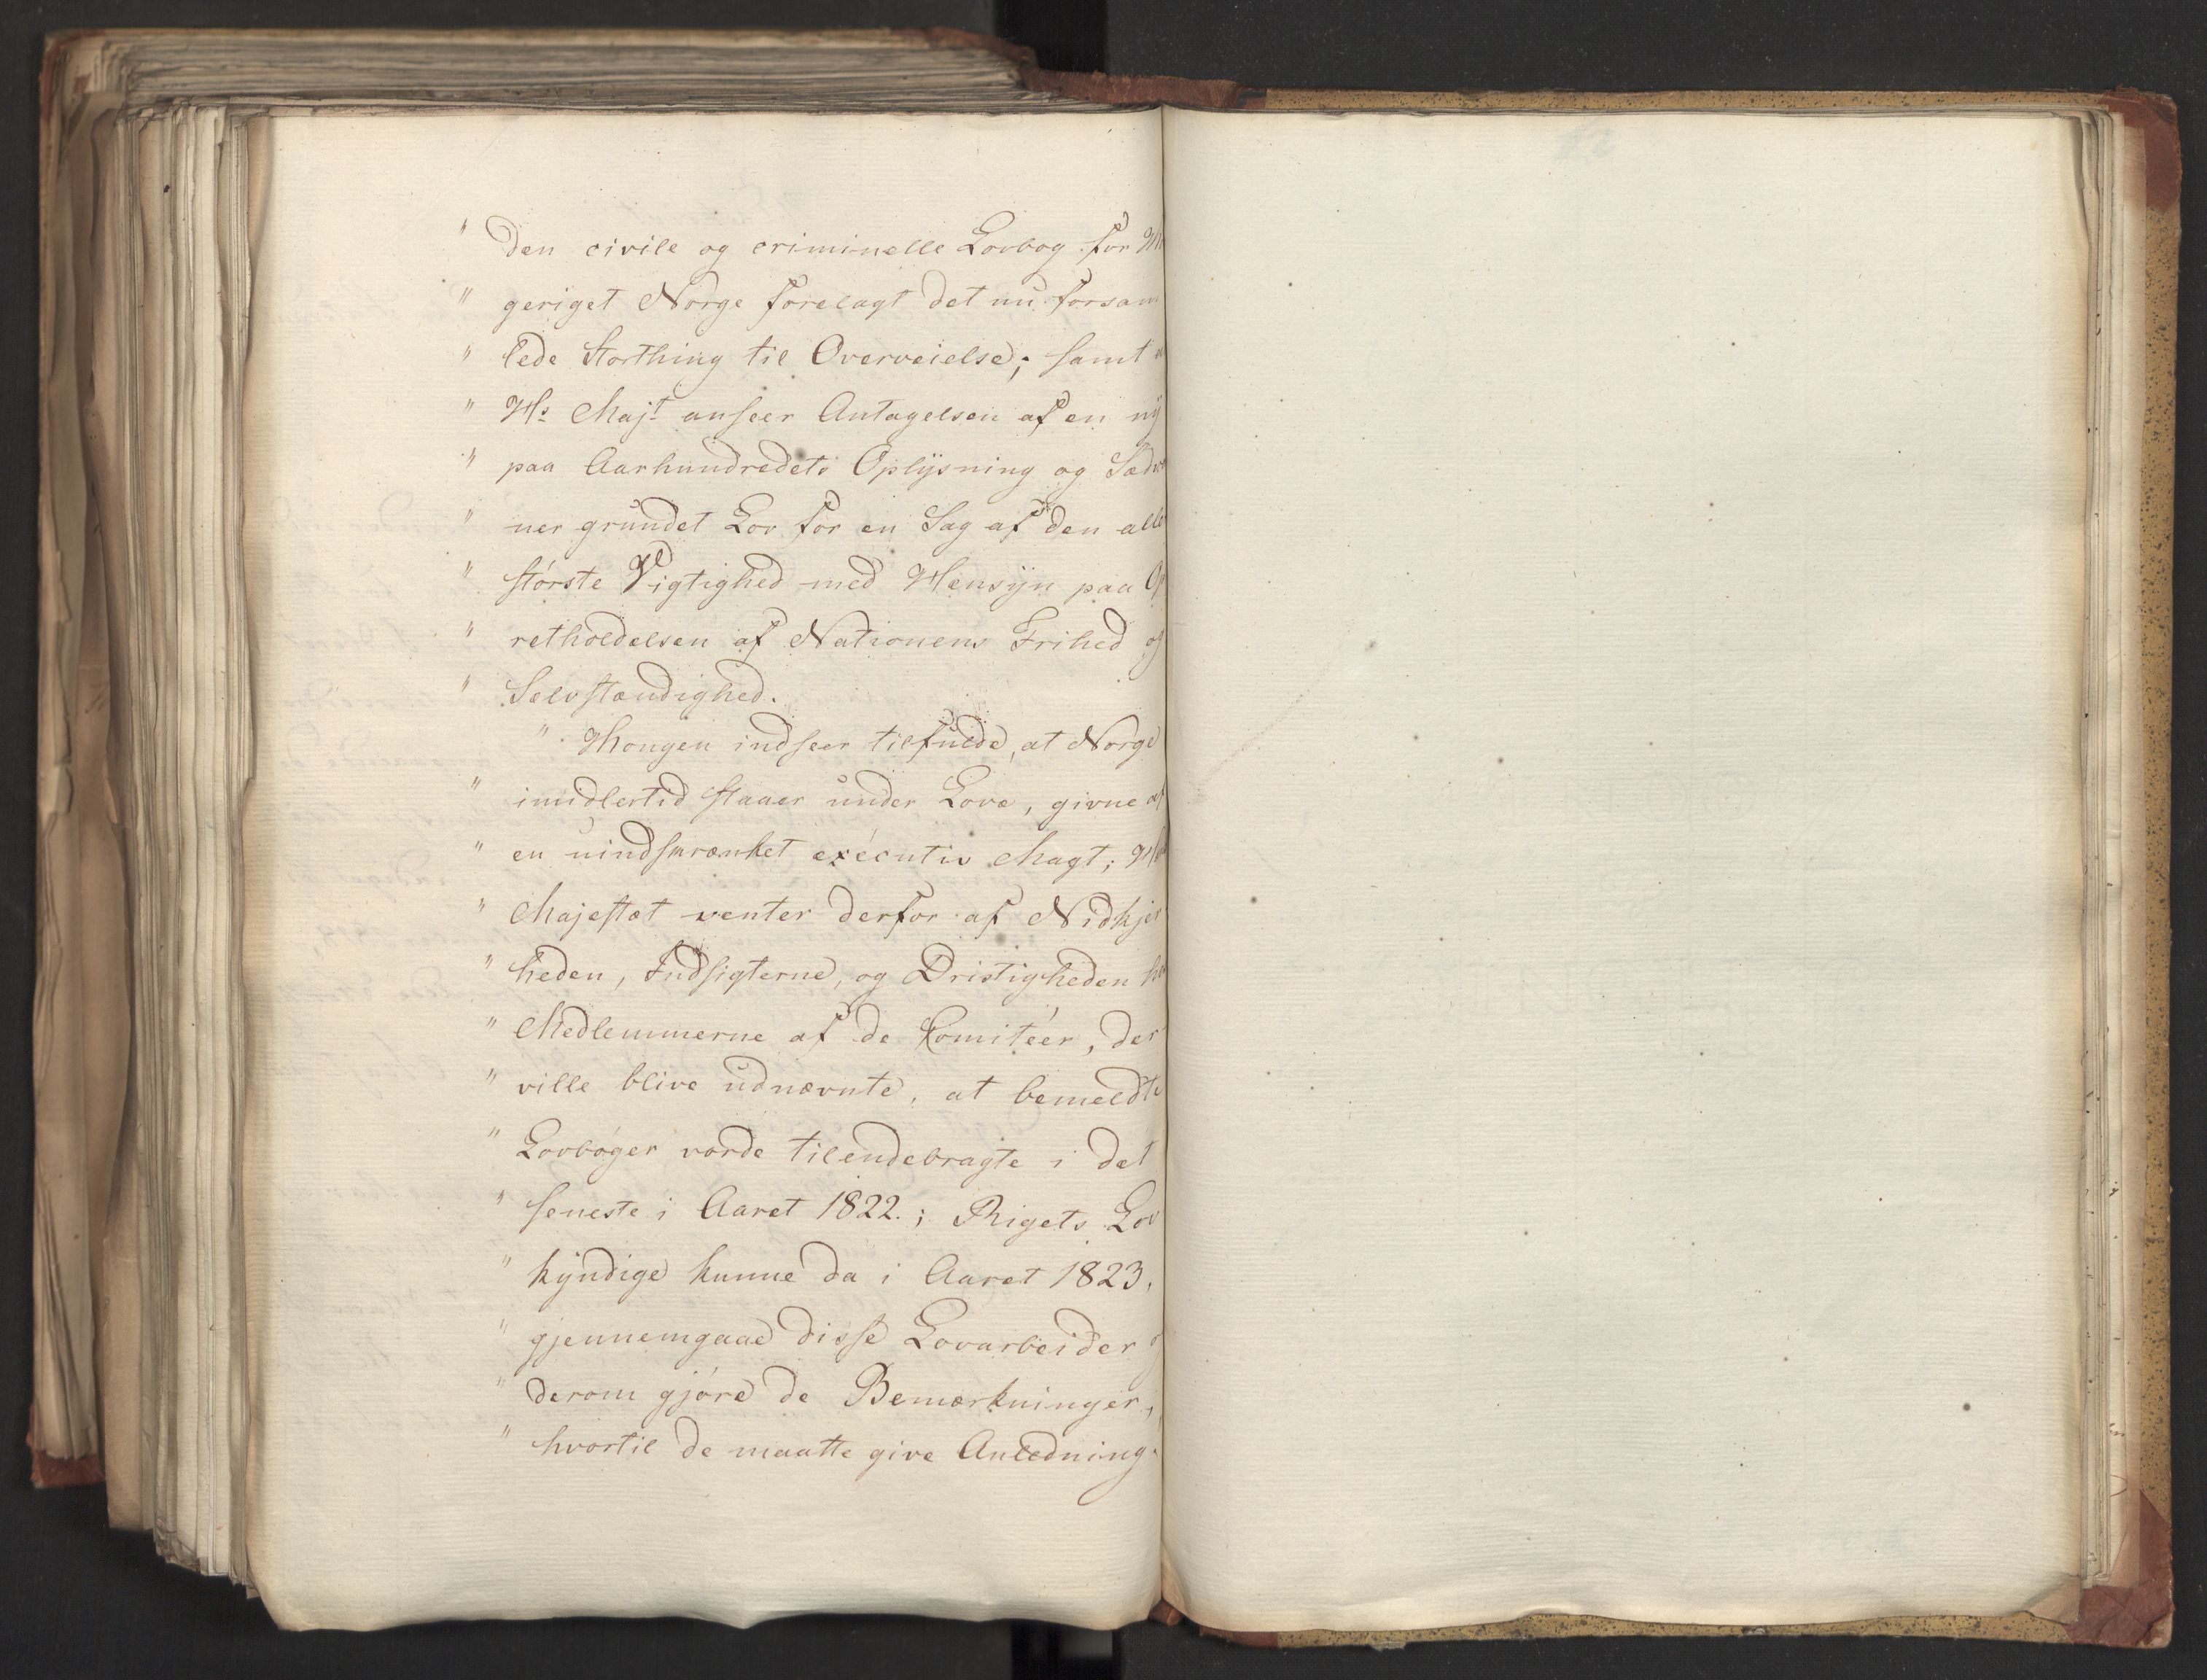 " den civile og criminelle Lovbog for
" geriget Norge forelagt det nu forsam
" lede Storthing til Overveielse; samt
" Hs Majt anseer Antagelsen af en ny
" paa Aarhundredets Oplysning og Sæd
" ner grundet Lov for en Sag af den alle
" største Vigtighed med Hensyn paa Op
" retholdelsen af Nationens Frihed og
" Selvstændighed.
" Kongen indseer tilfulde, at Norge
" imidlertid staaer under Love, givne af
" en uindskrænket exécutiv Magt;
" Majestæt venter derfor af Nidkjer
" heden, Indsigterne, og Dristigheden hos
" Medlemmerne af de Comitéer, der
" ville blive udnævnte, at bemeldte
" Lovbøger vorde tilendebragte i det
" seneste i Aaret 1822.; Rigets Lov
" kyndige kunne da i Aaret 1823.
" gjennemgaae disse Lovarbeider og
" derom gjøre de Bemærkninger,
" hvortil de maatte give Anledning.